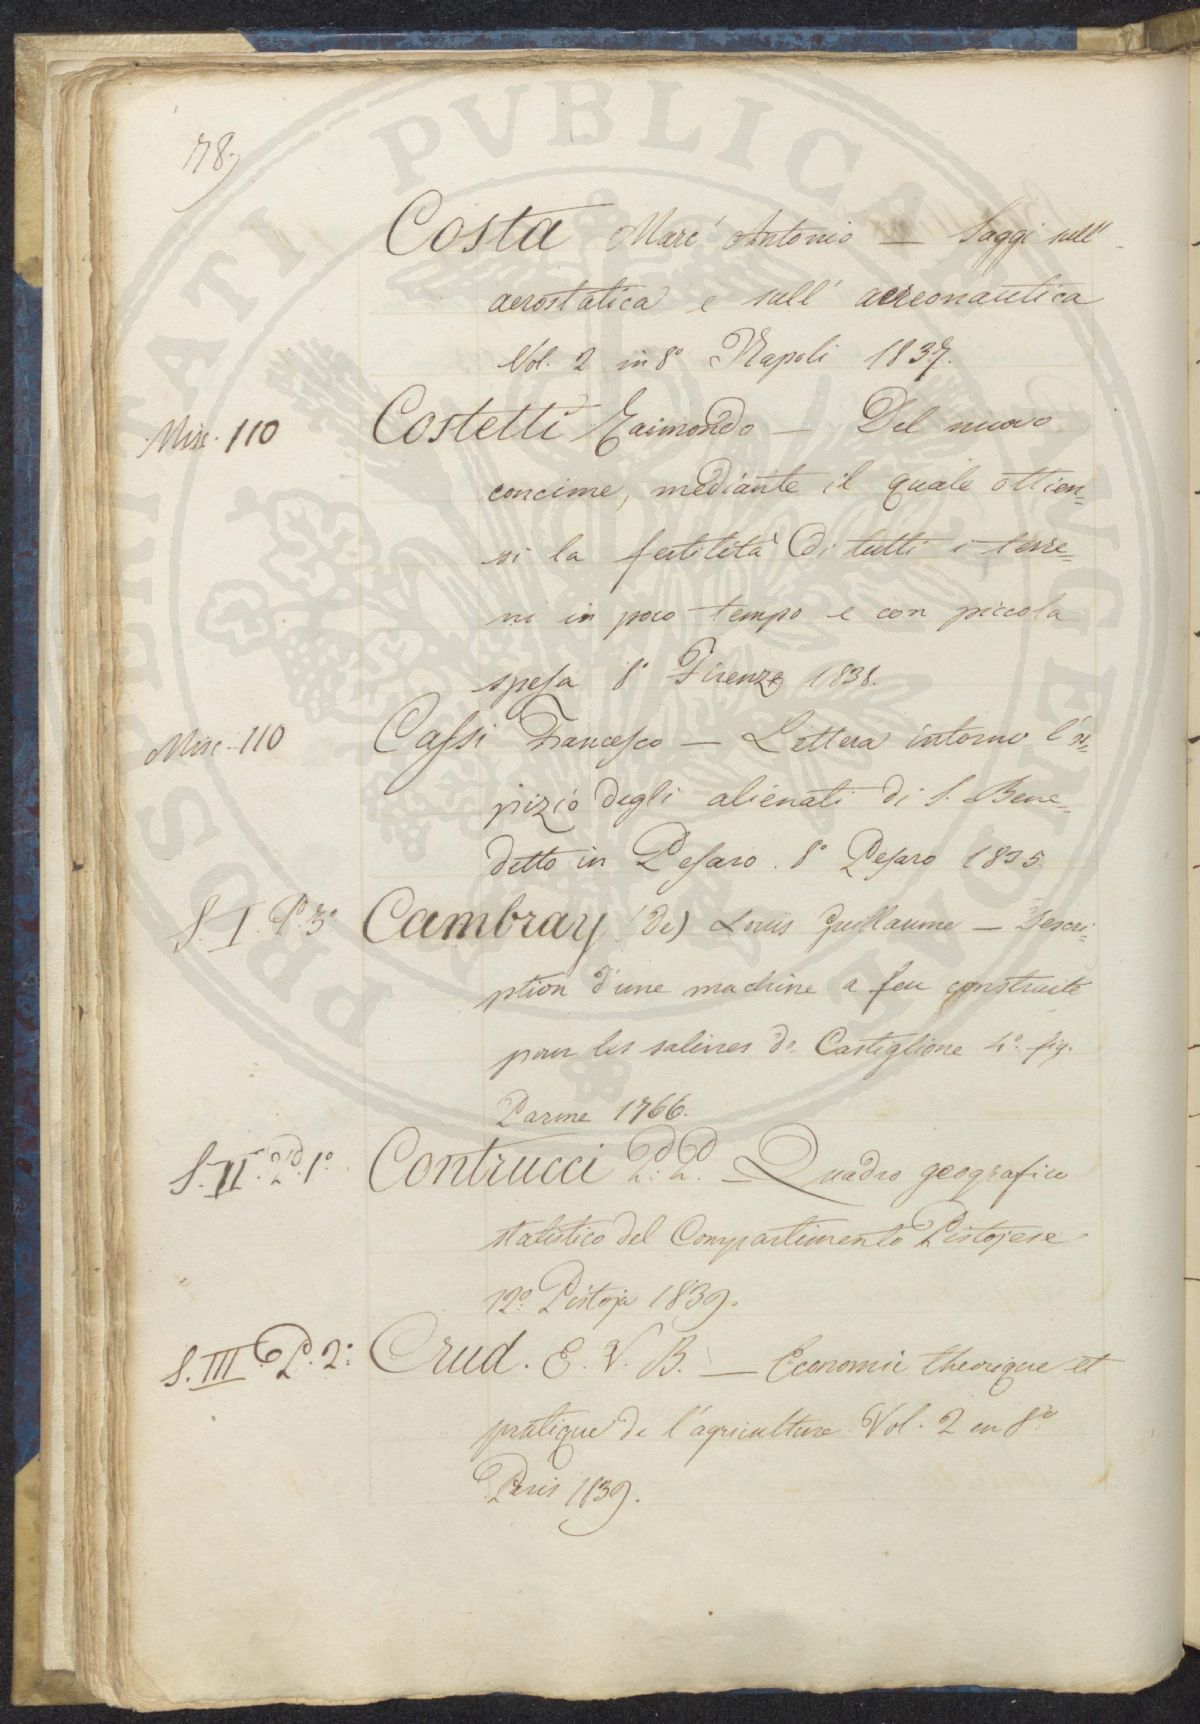 78,
Costa Marc' Antonio — Saggi sull'
aerostatica e sull' aereonautica
Vol. 2 in 8° Napoli 1837.
Misc. 110 Costetti Raimondo — Del nuovo
concime, mediante il quale ottien=
si la fertilità di tutti i terre=
ni in poco tempo e con piccola
spesa 8° Firenze 1838.
Misc. 110 Cassi Francesco — Lettera intorno l'os=
pizio degli alienati di S. Bene=
detto in Pesaro. 8° Pesaro 1835.
S. I. P. 3° Cambray (de) Louis Guillaume — Descri=
ption d'une machine a feu construite
pour les salines de Castiglione 4° fig.
Parme 1766.
S. II. P. 1° Contrucci — Quadro geografico
statistico del Compartimento Pistojese
12° Pistoja 1839.
S. III. P. 2° Crud. E. V. B. — Economie theorique et
pratique de l'agriculture Vol. 2 en 8°
Paris 1839.
PROSPERITATI PVBLICAE AVGENDAE